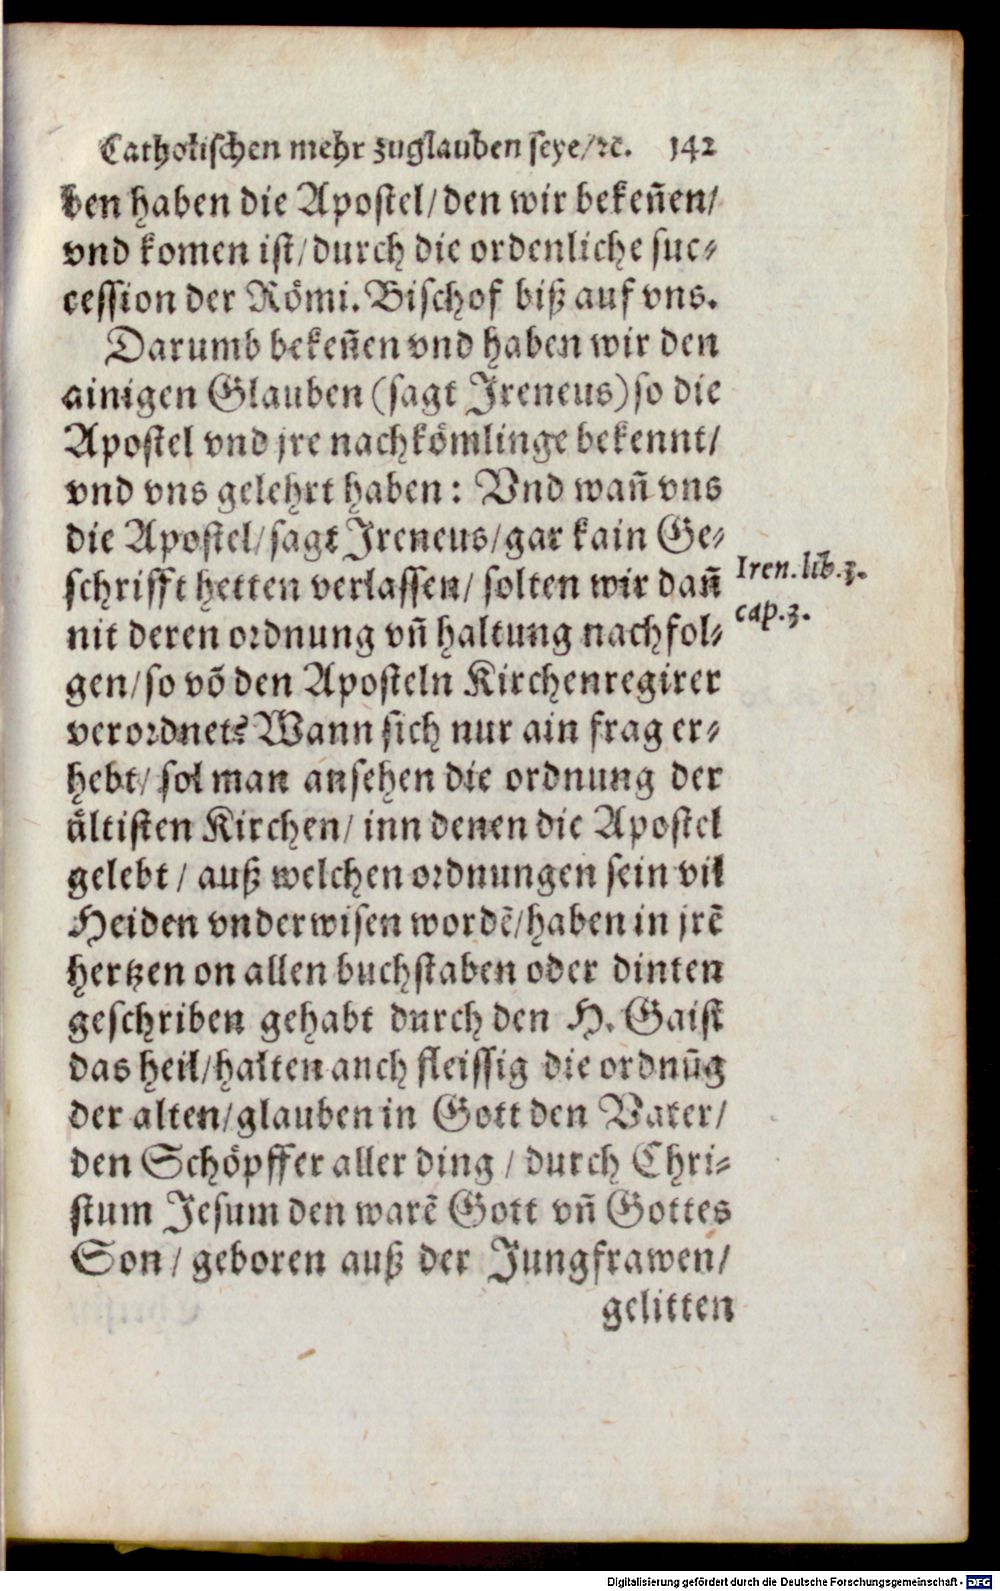 Catholischen mehr zuglauben seye/ꝛc. 142
ben haben die Apostel/den wir bekeñen/
vnd komen ist/durch die ordenliche suc⸗
cession der Römi. Bischof biß auf vns.
Darumb bekeñen vnd haben wir den
ainigen Glauben (sagt Ireneus) so die
Apostel vnd jre nachkömlinge bekennt/
vnd vns gelehrt haben: Vnd wañ vns
die Apostel/sagt Ireneus/gar kain Ge⸗
schrifft hetten verlassen/ solten wir dañ
Iren. lib. 3.
nit deren ordnung vñ haltung nachfol⸗
cap. 3.
gen/so võ den Aposteln Kirchenregirer
verordnet? Wann sich nur ain frag er⸗
hebt/ sol man ansehen die ordnung der
ältisten Kirchen/ inn denen die Apostel
gelebt / auß welchen ordnungen sein vil
Heiden vnderwisen wordẽ/haben in jrẽ
hertzen on allen buchstaben oder dinten
geschriben gehabt durch den H. Gaist
das heil/halten auch fleissig die ordnũg
der alten/glauben in Gott den Vater/
den Schöpffer aller ding / durch Chri⸗
stum Jesum den warẽ Gott vñ Gottes
Son / geboren auß der Jungfrawen/
gelitten
Digitalisierung gefördert durch die Deutsche Forschungsgemeinschaft - DFG